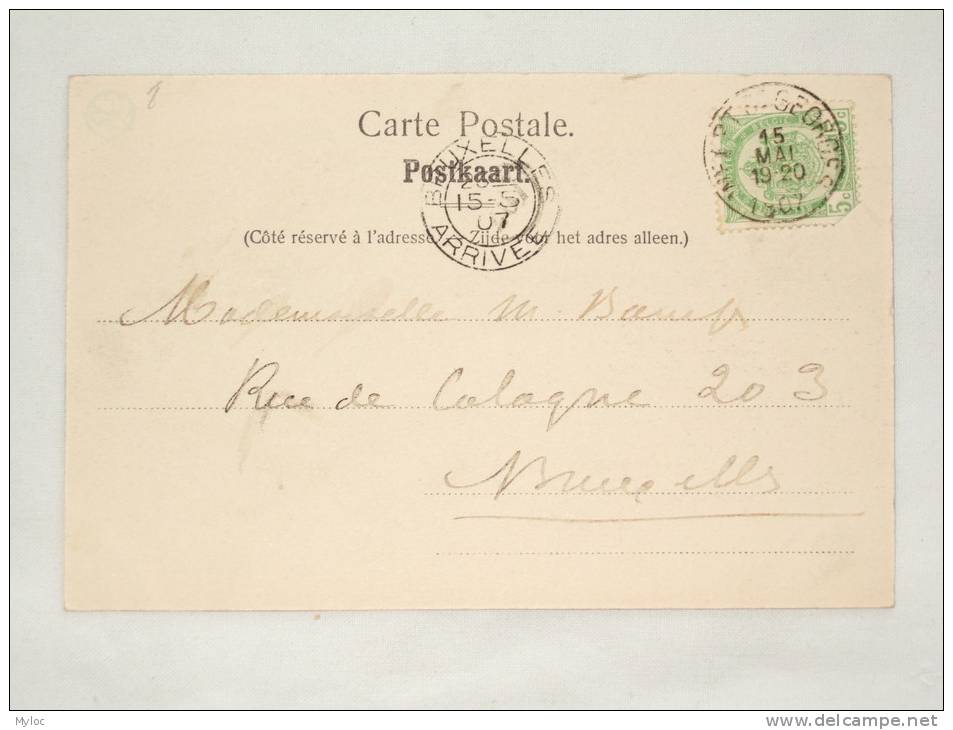 8
Carte Postale.
Postkaart.
(Côté réservé à l'adresse. Zijde voor het adres alleen.)
BRUXELLES
15-5
07
ARRIVEE
ST GEORGES
15
MAI
19-20
1907
BELGIE
5c
Mademoiselle M.
Rue de Cologne 203
Bruxelles
Myloc
delcampe.net